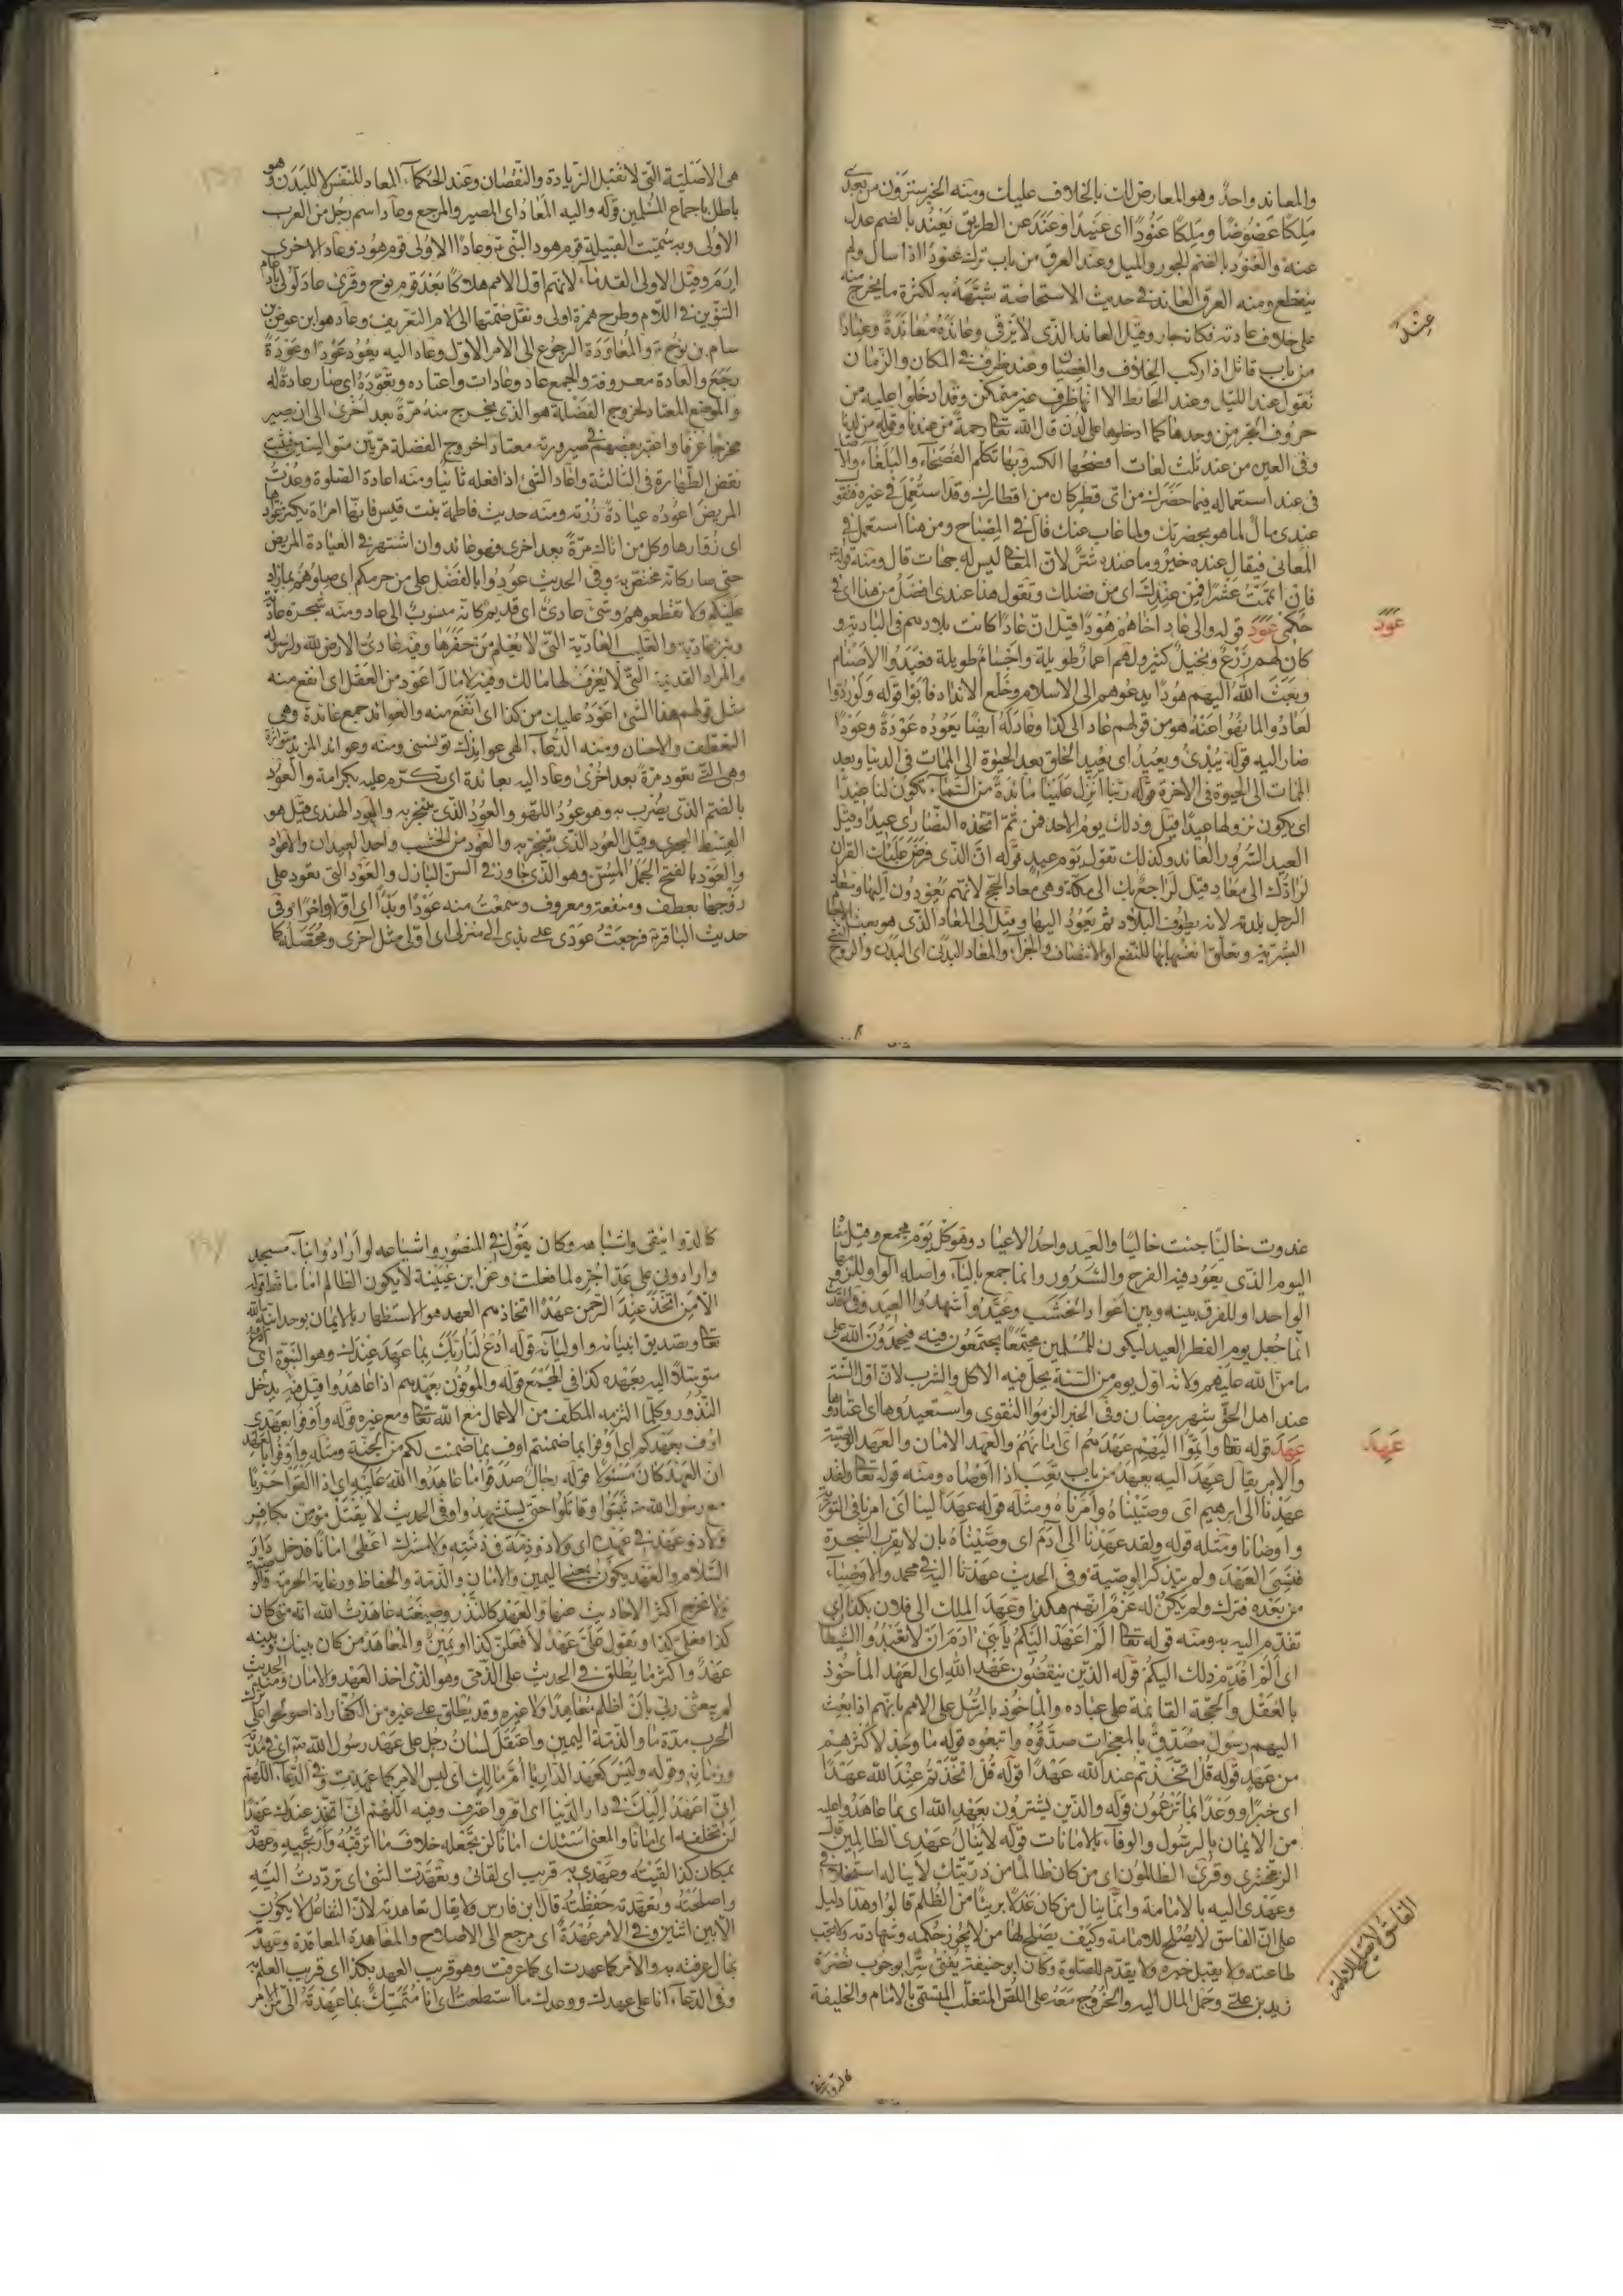 والمعاند واحد وهو المعارض لك بالخلاف عليك ومنه الخبر سترون من بعدى
ملكا عضوضا وملكا عنودا اى عنيدا وعند عن الطريق يعند بالضم عدل
عنه والعنود بالفتح الجور والميل وعند العرق من باب ترك عنودا اذا سال ولم
ينقطع ومنه العرق العاند فى حديث الاستحاضة شبّه به لكثرة ما يخرج منه
على خلاف عادته فكانه جار وقيل العاند الذى لا يرقى وعانده معاندة وعنادا
عند
من باب قاتل اذا ركب الخلاف والعصيان وعند ظرف فى المكان والزمان
تقول عند الليل وعند الحائط الا انها ظرف غير متمكن وقد ادخلوا عليه من
حروف الجر من وحدها كما ادخلوها على لدن قال الله تعا رحمة من عندنا وقوله من لدنا
وفى العين من عند ثلث لغات افصحها الكسر وبها تكلم الفصحاء والبلغاء والا
فى عند استعماله فيما حضرك من اى قطر كان من اقطارك وقد استعمل فى غيره فتقو
عندى مال لما هو بحضرتك ولما غاب عنك قال فى المصباح ومن هنا استعمل فى
المعانى فيقال عنده خير وما عنده شر لان المعانى ليس له جهات قال ومنه قوله تعا
فان اتممت عشرا فمن عندك اى من فضلك وتقول هذا عندى افضل من هذا اى فى
حكمى عود قوله والى عاد اخاهم هودا قيل ان عادا كانت بلادهم فى البادية و
عود
كان لهم زرع ونخيل كثير ولهم اعمار طويلة واجسام طويلة فعبدوا الاصنام
وبعث الله اليهم هودا يدعوهم الى الاسلام وخلع الانداد فابوا قوله ولو ردوا
لعادوا لما نهوا عنه هو من قولهم عاد الى كذا وعاد له ايضا يعود عودة وعودا
صار اليه قوله يبدئ ويعيد اى يعيد الخلق بعد الحيوة الى الممات فى الدنيا وبعد
الممات الى الحيوة فى الاخرة قوله ربنا انزل علينا مائدة من السماء تكون لنا عيدا
اى يكون نزولها عيدا قيل وذلك يوم الاحد فمن ثم اتخذه النصارى عيدا وقيل
العيد السرور العائد وكذلك تقول يوم عيد قوله ان الذى فرض عليك القران
لرادك الى معاد قيل لراجع بك الى مكة وهى معاد الحج لانهم يعودون اليها ومعاد
الرجل بلده لانه يطوف البلاد ثم يعود اليها وقيل الى المعاد الذى هو بعث
البشرية وتعلق انفسها بها للنفع او الانتصاف والجزاء والمعاد البدنى اى البدن والروح
هى الاصلية التى لا تقبل الزيادة والنقصان وعند الحكماء المعاد للنفس لا للبدن وهو
باطل باجماع المسلمين قوله واليه المعاد اى المصير والمرجع وعاد اسم رجل من العرب
الاولى وبه سميت القبيلة قوم هود النبى ع وعادا الاولى قوم هود وعاد الاخرى
ارم وقيل الاولى القدماء لانهم اول الامم هلاكا بعد قوم نوح وقرئ عاد لولى بادغام
التنوين فى اللام وطرح همزة اولى ونقل ضمتها الى لام التعريف وعاد هو ابن عوض بن
سام بن نوح ع والمعاودة الرجوع الى الامر الاول وعاد اليه يعود عودا وعودة
رجع والعادة معروفة والجمع عاد وعادات واعتاده وتعوده اى صار عادة له
والموضع المعتاد لخروج الفضلة هو الذى يخرج منه مرة بعد اخرى الى ان يصير
مخرجا عرفا واعتبر بعضهم فى صيرورته معتادا خروج الفضلة مرتين متواليتين فيجب
نقض الطهارة فى الثالثة واعاد الشئ اذا فعله ثانيا ومنه اعادة الصلوة وعدت
المريض اعوده عيادة زرته ومنه حديث فاطمة بنت قيس فانها امراة يكثر عوادها
اى زوارها وكل من اتاك مرة بعد اخرى فهو عائد وان اشتهر فى العيادة المريض
حتى صار كانه مختص به وفى الحديث عودوا بالفضل على من حرمكم اى صلوهم بما زاد
عليكم ولا تقطعوهم وشئ عادى اى قديم كانه منسوب الى عاد ومنه شجرة عادية
وبئر عادية والقليب العادية التى لا يعلم من حفرها وفيه عادى الارض لله ولرسوله
والمراد القديمة التى لا يعرف لها مالك وفيه لا مال اعود من العقل اى انفع منه
مثل قولهم هذا الشئ اعود عليك من كذا اى انفع منه والعوائد جمع عائدة وهى
التعطف والاحسان ومنه الدعاء الهى عوائدك تونسنى ومنه وعوائد المزيد متواترة
وهى التى تعود مرة بعد اخرى وعاد اليه بعائدة اى تكرم عليه بكرامة والعود
بالضم الذى يضرب به وهو عود اللهو والعود الذى يتبخر به والعود الهندى قيل هو
القسط البحرى وقيل العود الذى يتبخر به والعود من الخشب واحد العيدان والاعواد
والعود بالفتح الجمل المسن وهو الذى جاوز فى السن البازل والعود التى تعود على
زوجها بعطف ومنفعة ومعروف وسمعت منه عودا وبدءا اى اولا واخرا وفى
حديث الباقر ع فرجعت عودى على بدئى الى منزلى اى اولى مثل اخرى ومحصله كما
غدوت خاليا جئت خاليا والعيد واحد الاعياد وهو كل يوم مجمع وقيل
اليوم الذى يعود فيه الفرح والسرور وانما جمع بالياء واصله الواو للزومها
الواحد او للفرق بينه وبين اعواد الخشب وعيدوا شهدوا العيد وفى
انما جعل يوم الفطر العيد ليكون للمسلمين مجتمعا يجتمعون فيه فيحمدون الله على
ما من الله عليهم ولانه اول يوم من السنة يحل فيه الاكل والشرب لان اول السنة
عند اهل الحق شهر رمضان وفى الخبر الزموا التقوى واستعيدوها اى اعتادوها
عهد قوله تعا واتموا اليهم عهدهم اى امانهم والعهد الامان والعهد الوصية
عهد
والامر يقال عهد اليه يعهد من باب تعب اذا اوصاه ومنه قوله تعا ولقد
عهدنا الى ابرهيم اى وصيناه وامرناه ومثله قوله عهد الينا اى امرنا فى التورية
واوصانا ومثله قوله ولقد عهدنا الى آدم اى وصيناه بان لا يقرب الشجرة
فنسى العهد ولم يتذكر الوصية وفى الحديث عهدنا اليه فى محمد والاوصياء
من بعده فترك ولم يكن له عزم انهم هكذا وعهد الملك الى فلان بكذا اى
تقدم اليه به ومنه قوله تعا الم اعهد اليكم يا بنى آدم ان لا تعبدوا الشيطا
اى الم اقدم ذلك اليكم قوله الذين ينقضون عهد الله اى العهد الماخوذ
بالعقل والحجة القائمة على عباده والماخوذ بالرسل على الامم بانهم اذا بعث
اليهم رسول مصدق بالمعجزات صدقوه واتبعوه قوله ما وجد لاكثرهم
من عهد قوله قل اتخذتم عند الله عهدا قوله قل اتخذتم عند الله عهدا
اى خبرا ووعدا بما تزعمون قوله والذين يشترون بعهد الله اى بما عاهدوا عليه
من الايمان بالرسول والوفاء بالامانات قوله لا ينال عهدى الظالمين قال
الزمخشرى وقرئ الظالمون اى من كان ظالما من ذريتك لا يناله استخلافى
وعهدى اليه بالامامة وانما ينال من كان عدلا بريئا من الظلم قالوا وهذا دليل
على ان الفاسق لا يصلح للامامة وكيف يصلح لها من لا يجوز حكمه وشهادته ولا تجب
الفاسق لا يصلح للامامة
طاعته ولا يقبل خبره ولا يقدم للصلوة وكان ابو حنيفة يفتى سرا بوجوب نصرة
زيد بن على وحمل المال اليه والخروج معه على اللص المتغلب المتسمى بالامام والخليفة
كالدوانيقى
كالدوانيقى واشباهه وكان يقول فى المنصور واشياعه لو ارادوا بناء مسجد
وارادونى على عد اجره لما فعلت وعن ابن عيينة لا يكون الظالم اماما قط قوله
الا من اتخذ عند الرحمن عهدا اتخاذهم العهد هو الاستظهار بالايمان بوحدانية الله
تعا وتصديق انبيائه واوليائه قوله ادع لنا ربك بما عهد عندك وهو النبوة اى ادع
متوسلا اليه بعهده كذا فى المجمع قوله والموفون بعهدهم اذا عاهدوا قيل فيه يدخل
النذور وكلما التزمه المكلف من الاعمال مع الله تعا ومع غيره قوله واوفوا بعهدى
اوف بعهدكم اى اوفوا بما ضمنتم اوف بما ضمنت لكم من الجنة ومثله واوفوا بالعهد
ان العهد كان مسئولا قوله رجال صدقوا ما عاهدوا الله عليه اى اذا لقوا حربا
مع رسول الله ص ثبتوا وقاتلوا حتى يستشهدوا وفى الحديث لا يقتل مؤمن بكافر
ولا ذو عهد فى عهده اى ولا ذو ذمة فى ذمته ولا مشرك اعطى امانا فدخل دار
السلام والعهد يكون بمعنى اليمين والامان والذمة والحفاظ ورعاية الحرمة والوصية
ولا تخرج اكثر الاحاديث عنها والعهد كالنذر وصيغته عاهدت الله انه متى كان
كذا فعلى كذا وتقول على عهد لافعلن كذا او يمين والمعاهد من كان بينك وبينه
عهد واكثر ما يطلق فى الحديث على الذمى وهو الذى اخذ العهد والامان ومنه الحديث
لم يبعثنى ربى بان اظلم معاهدا ولا غيره وقد يطلق على غيره من الكفار اذا صولحوا على ترك
الحرب مدة ما والذمة اليمين واعتقل لسان رجل على عهد رسول الله ص اى فى مدته
وزمانه وقوله وليس كعهد الدار يا ام مالك اى ليس الامر كما عهدت وفى الدعاء اللهم
انى اعهد اليك فى دار الدنيا اى اقر واعترف وفيه اللهم انى اتخذ عندك عهدا
لن تخلفه اى امانا والمعنى اسئلك امانا لن تجعله خلاف ما اترقبه وارتجيه وعهدته
بمكان كذا لقيته وعهدى به قريب اى لقائى وتعهدت الشئ اى ترددت اليه
واصلحته وتعهدته حفظته قال ابن فارس ولا يقال تعاهدته لان التفاعل لا يكون
الا بين اثنين وفى الامر عهدة اى مرجع الى الاصلاح والمعاهدة المعاقدة وعهدته
بمال عرفته به والامر كما عهدت اى كما عرفت وهو قريب العهد بكذا اى قريب العلم به
وفى الدعاء انا على عهدك ووعدك ما استطعت اى انا متمسك بما عهدته الى من الامر